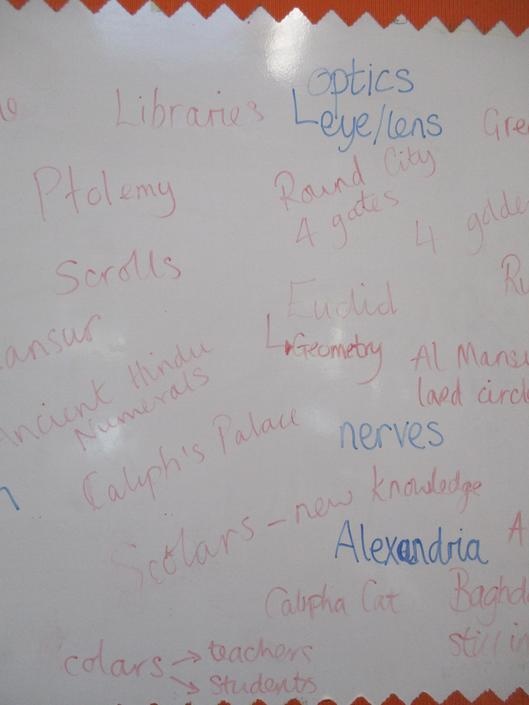 Libraries
Optics
eye/lens
Gre
Ptolemy
Round City
4 gates
4 golde
Scrolls
Ru
Euclid
Geometry
ansur
Al Mansu
laed circl
Ancient Hindu
Numerals
Caliph's Palace
nerves
Scolars - new knowledge
Alexandria
A
Calipha Cat
Baghd
still in
colars → teachers
→ students